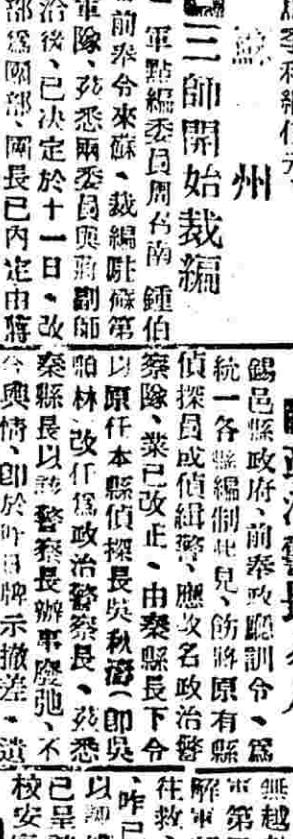 蘇州
三師開始裁編
軍點編委員周名南、鍾伯
前奉令來蘇、裁編駐蘇第
軍隊、茲悉兩委員與蔣副師
洽後、已決定於十一日、改
部爲團部、團長已內定由蔣
錫邑縣政府、前奉政廳訓令、爲
統一各縣編制起見、飭將原有縣
偵探員或偵緝警、應改名政治警
察隊、業已改正、由秦縣長下令
以原任本縣偵探長吳秋濤(即吳
柏林、改任爲政治警察長、茲悉
秦縣長以該警察長辦事廢弛、不
輿情、即於昨日牌示撤差、遺
無越
軍第
解軍
往救
、昨已
以師
已呈
校安